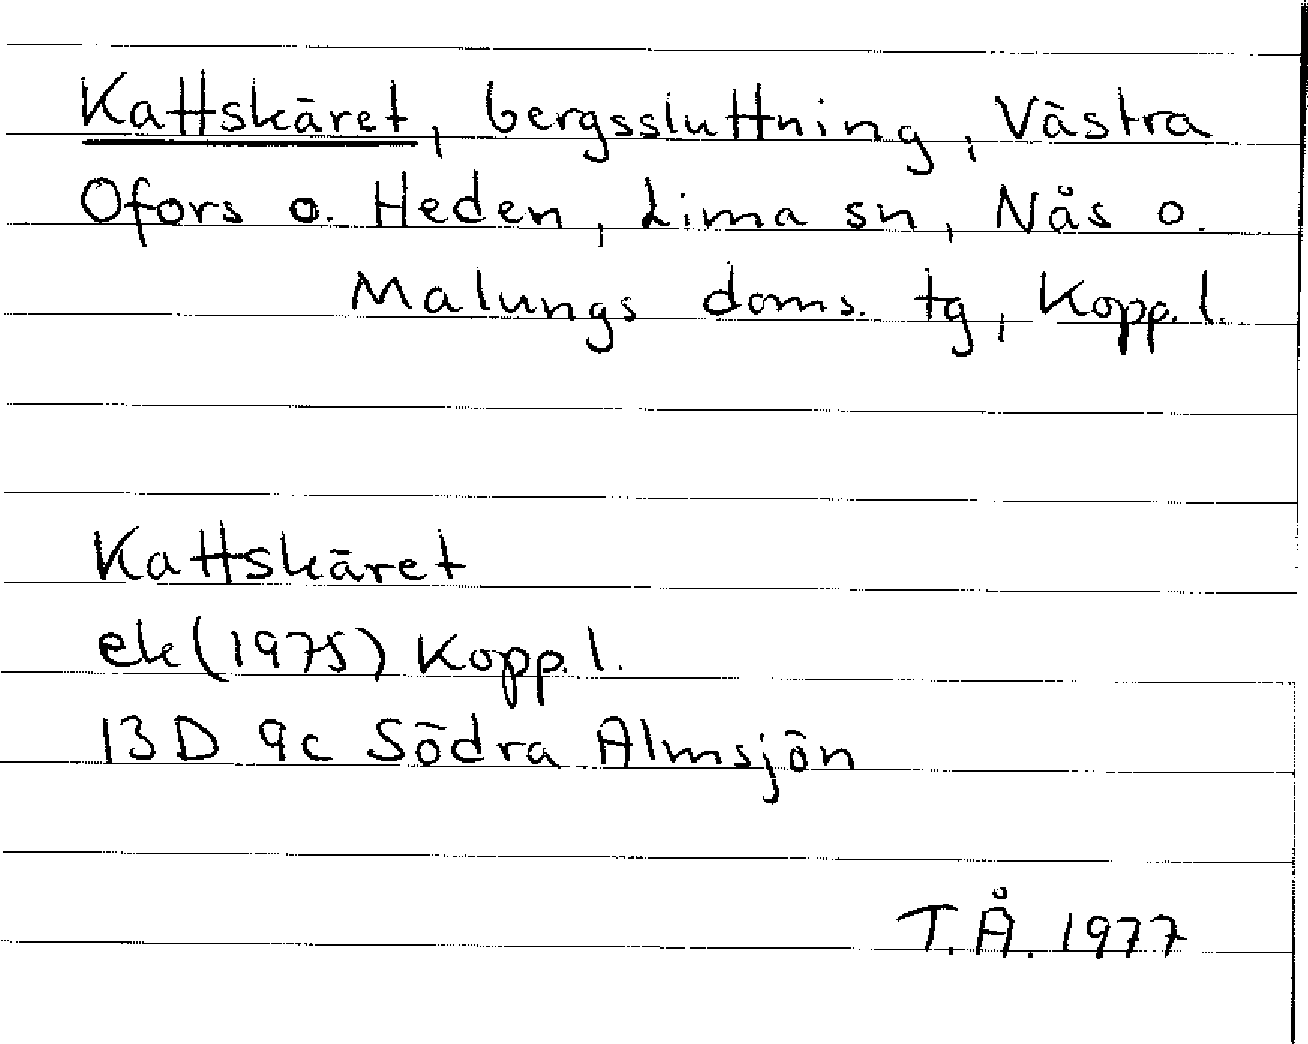 Kattskäret, bergssluttning, Västra
Ofors o. Heden, Lima sn, Nås o.
Malungs doms. tg, Kopp. l.
Kattskäret
ek (1975) Kopp. l.
13 D 9c Södra Almsjön
T.Å. 1977